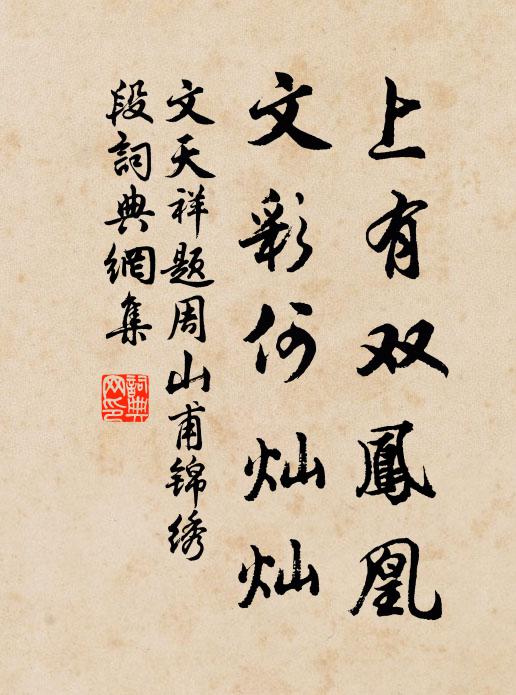 上有双鳳凰
文彩何灿灿
文天祥题周山甫锦绣
段詞典網集
詞典
网印